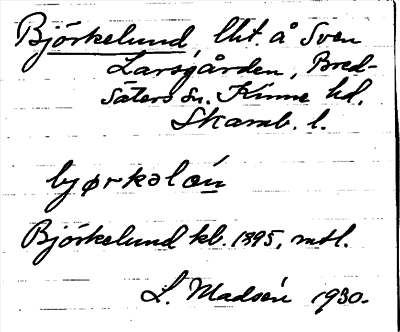 Björkelund, lht. å Sven
Larsgården, Bred-
säters sn. Kinne hd.
Skarab. l.
bjørkəlọń
Björkelund kb. 1895, mtl.
L. Madsén 1930.